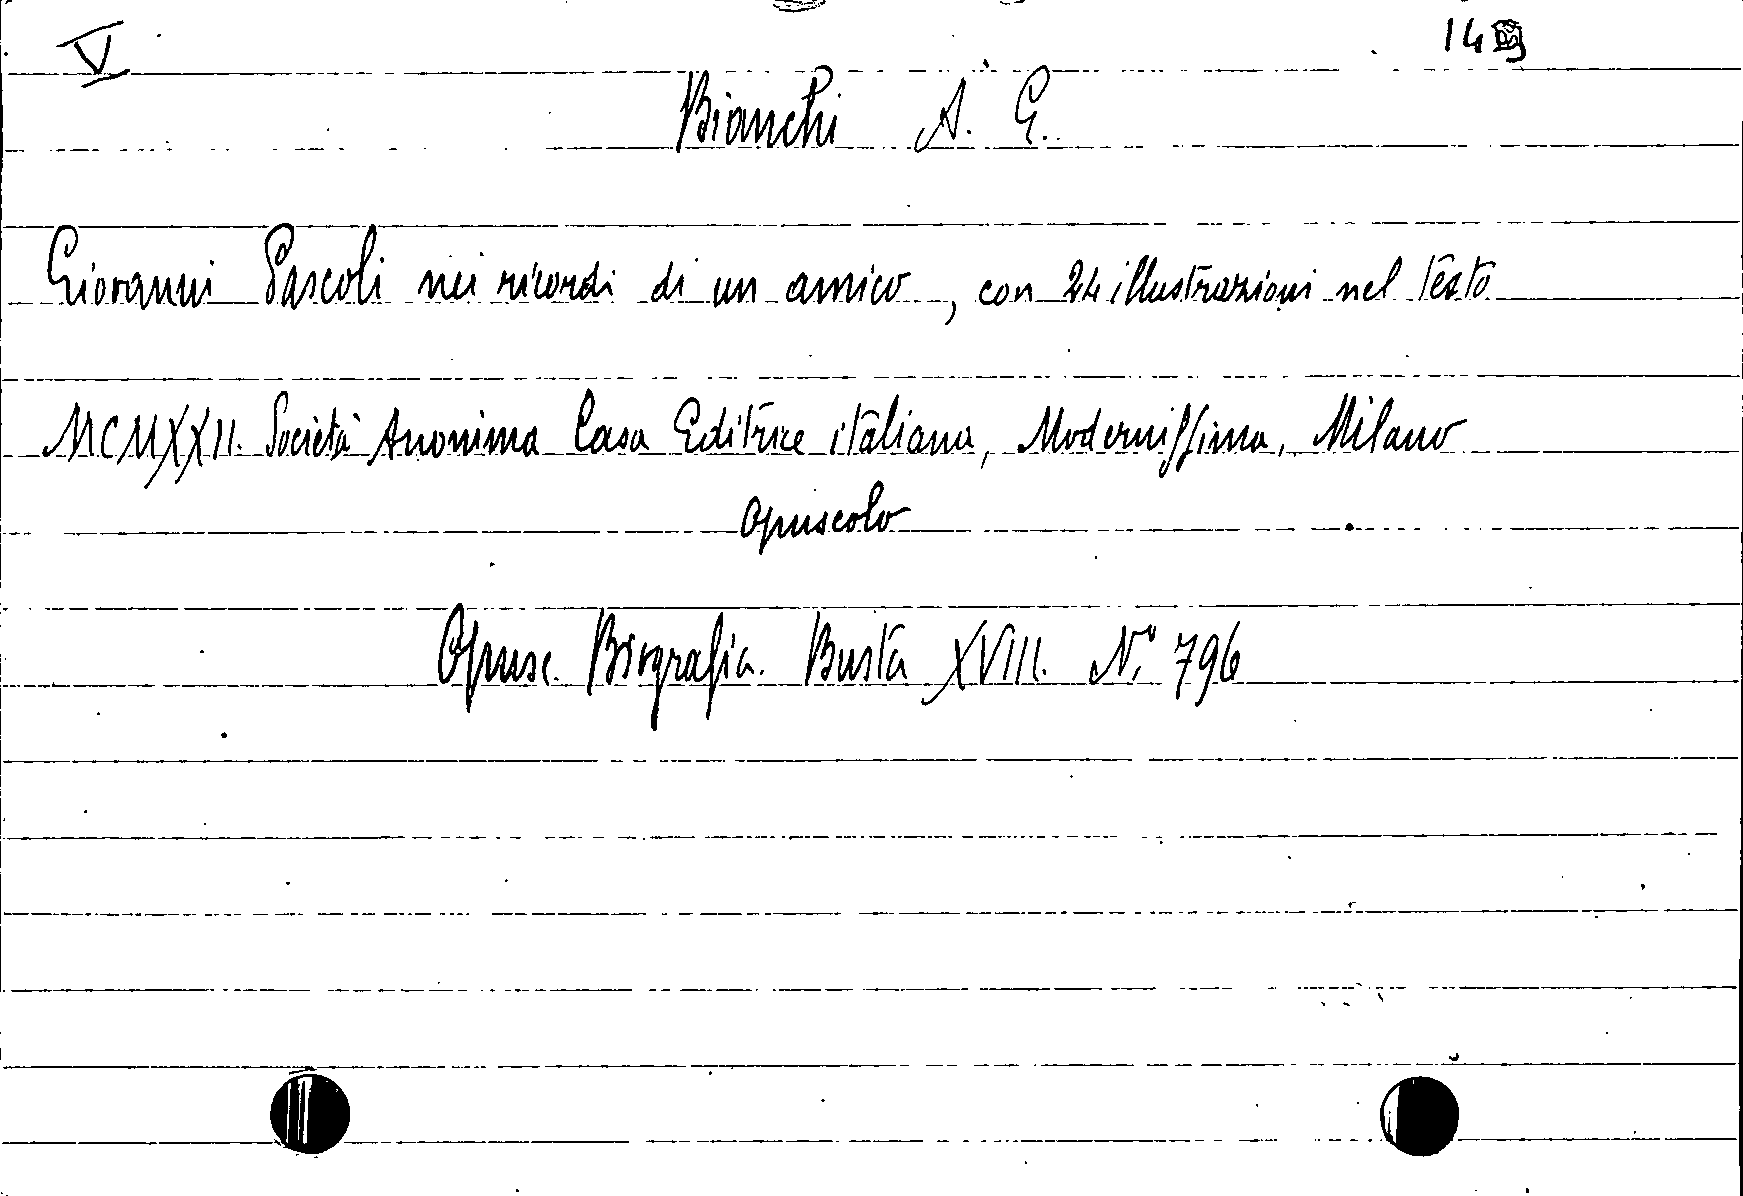 V 14
Bianchi A. G.
Giovanni Pascoli nei ricordi di un amico, con 24 illustrazioni nel testo
MCMXXII. Società Anonima Casa Editrice italiana, Modernissima, Milano
opuscolo
Opusc. Biografia. Busta XVIII. N.° 796